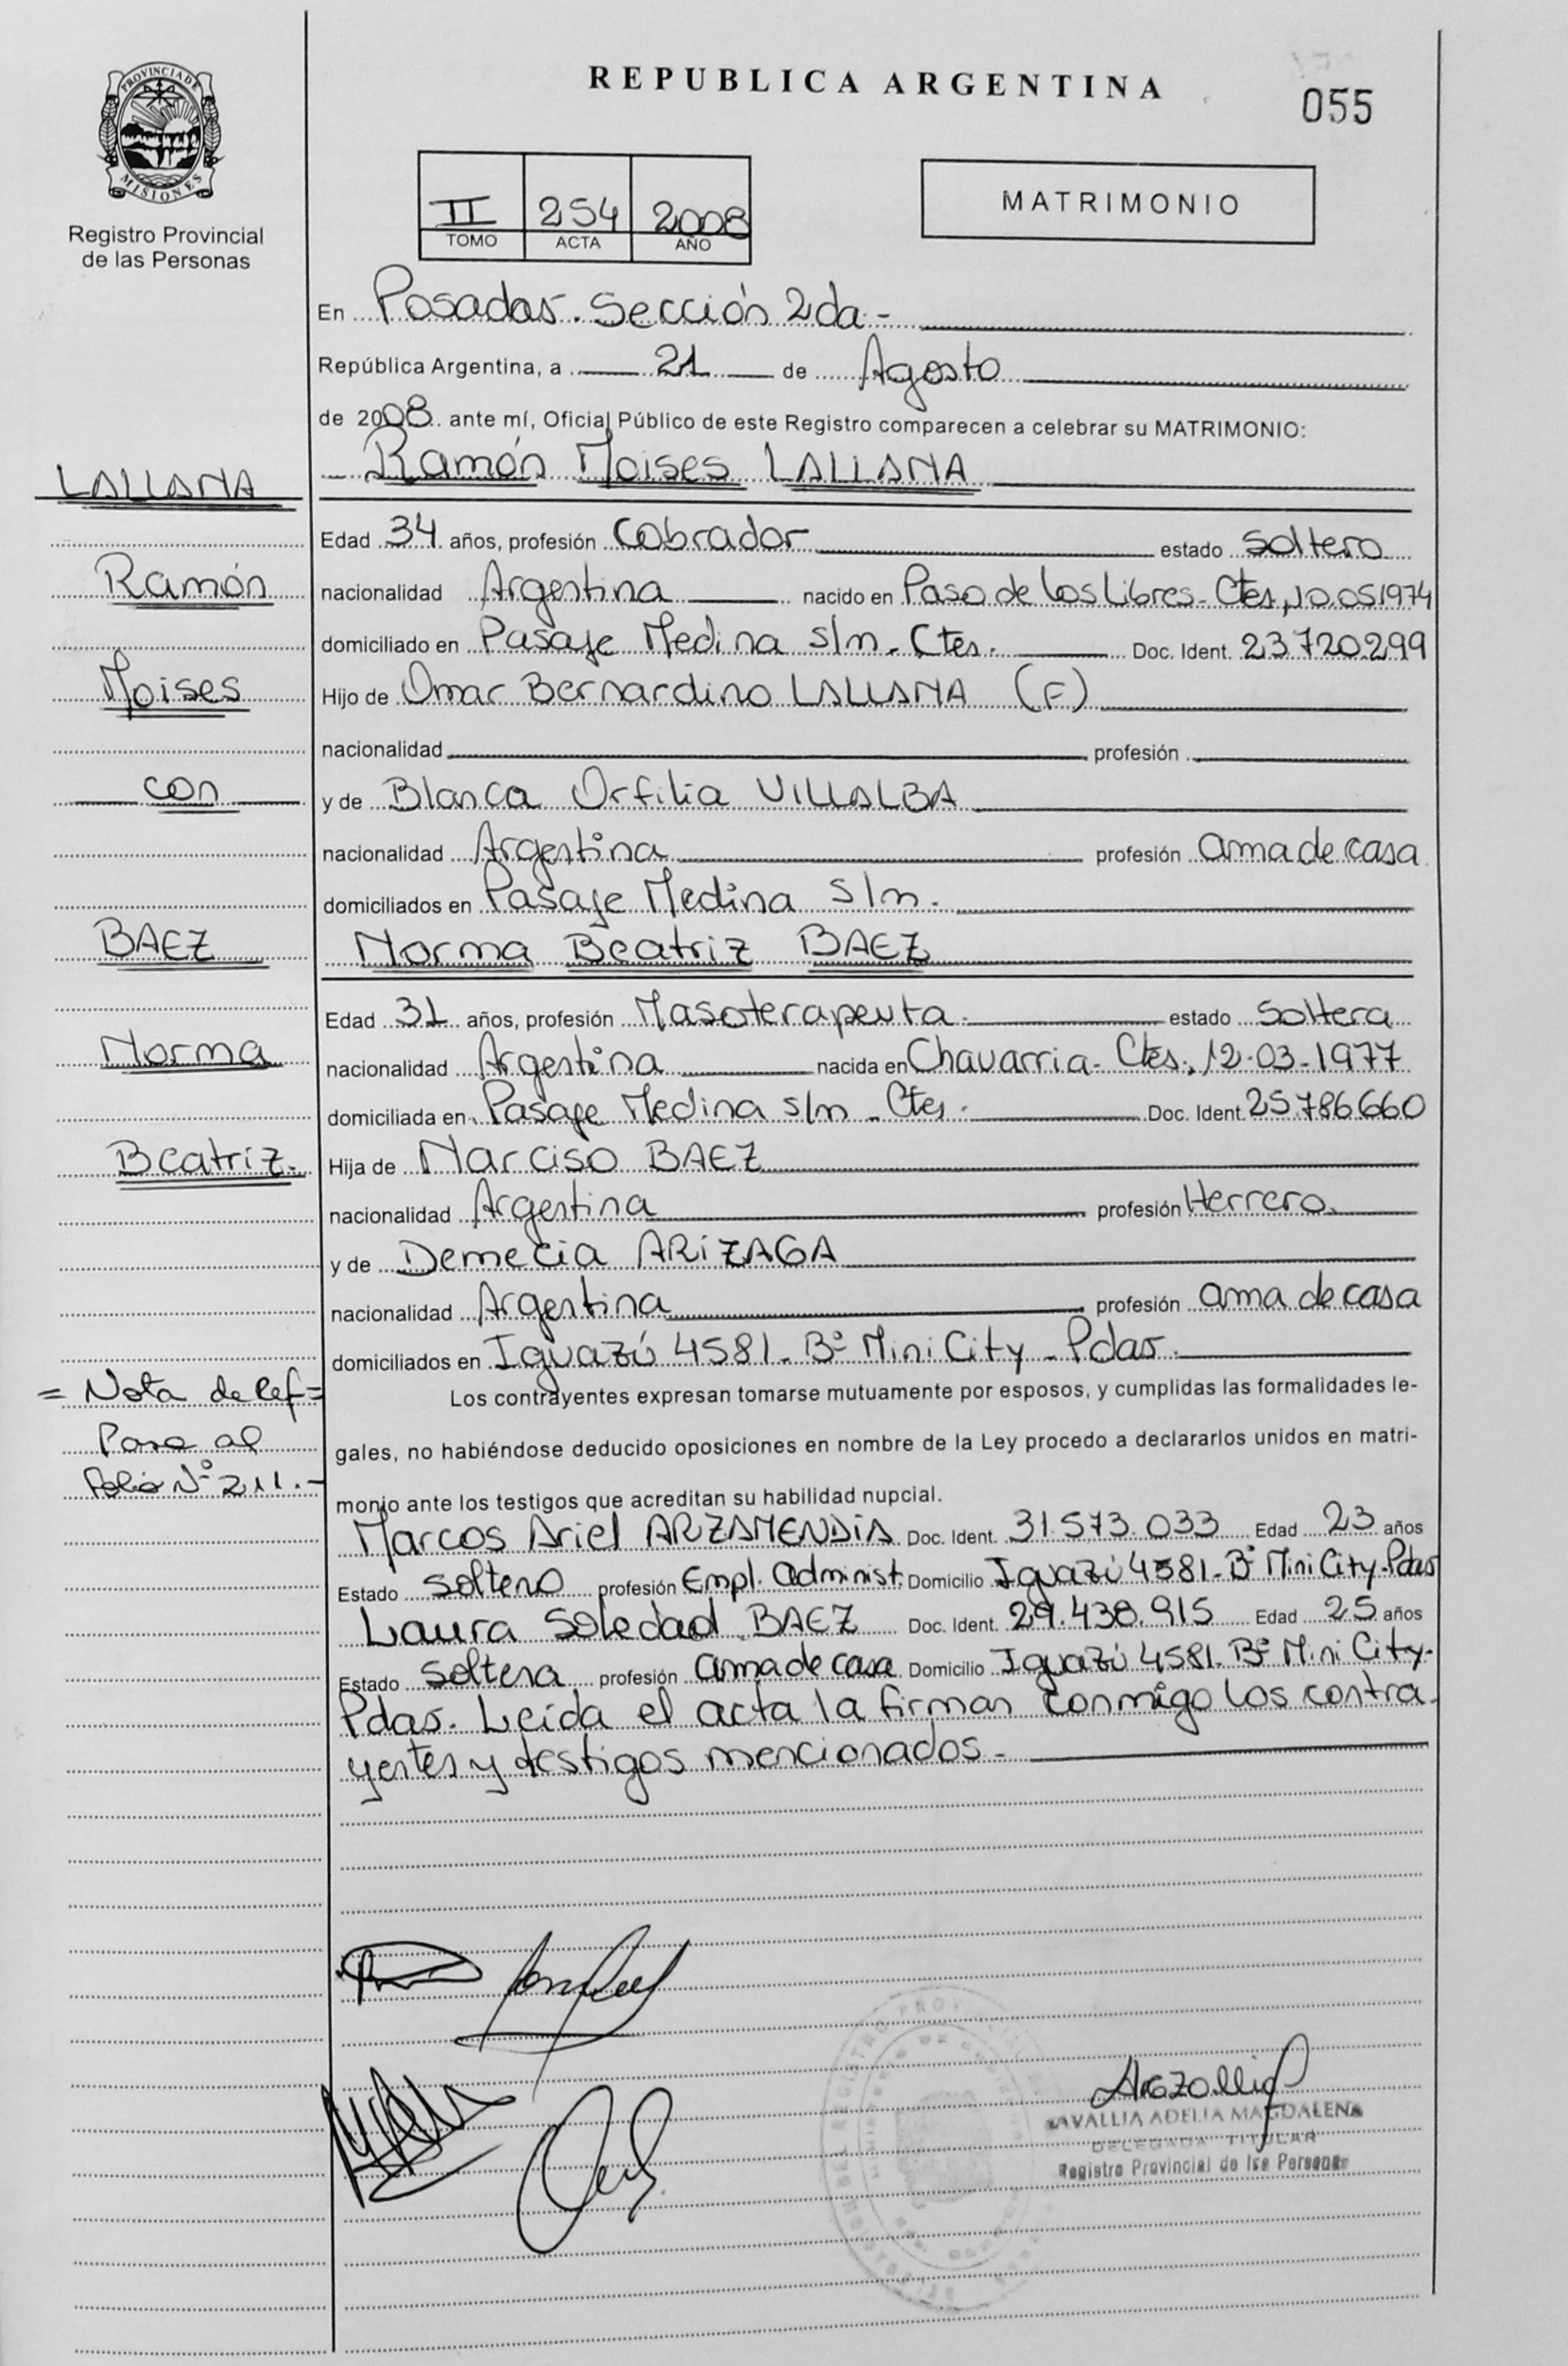 PROVINCIA DE
MISIONES
Registro Provincial
de las Personas
REPUBLICA ARGENTINA
055
II 254 2008
TOMO ACTA AÑO
MATRIMONIO
En Posadas. Sección 2da -
República Argentina, a 21 de Agosto
de 2008 ante mí, Oficial Público de este Registro comparecen a celebrar su MATRIMONIO:
Ramón Moises LALLANA
Edad 34 años, profesión Cobrador estado Soltero
nacionalidad Argentina nacido en Paso de los Libres - Ctes, 10.05.1974
domiciliado en Pasaje Medina s/n - Ctes. Doc. Ident. 23.720.299
Hijo de Omar Bernardino LALLANA (F)
nacionalidad profesión
y de Blanca Orfilia VILLALBA
nacionalidad Argentina profesión ama de casa
domiciliados en Pasaje Medina s/n.
Norma Beatriz BAEZ
Edad 31 años, profesión Masoterapeuta. estado Soltera
nacionalidad Argentina nacida en Chavarria - Ctes., 12-03-1977
domiciliada en Pasaje Medina s/n - Ctes. Doc. Ident. 25.786.660
Hija de Narciso BAEZ
nacionalidad Argentina profesión Herrero.
y de Demecia ARIZAGA
nacionalidad Argentina profesión ama de casa
domiciliados en Iguazú 4581 - Bº Mini City - Pdas.
Los contrayentes expresan tomarse mutuamente por esposos, y cumplidas las formalidades le-
gales, no habiéndose deducido oposiciones en nombre de la Ley procedo a declararlos unidos en matri-
monio ante los testigos que acreditan su habilidad nupcial.
Marcos Ariel ARZAMENDIA Doc. Ident. 31.573.033 Edad 23 años
Estado soltero profesión Empl. Administ. Domicilio Iguazú 4581 - Bº Mini City - Pdas
Laura Soledad BAEZ Doc. Ident. 29.438.915 Edad 25 años
Estado Soltera profesión ama de casa Domicilio Iguazú 4581. Bº Mini City -
Pdas. Leída el acta la firman conmigo los contra-
yentes y testigos mencionados -
LALLANA
Ramón
Moises
con
BAEZ
Norma
Beatriz.
= Nota de Ref =
Pasa al
folio Nº 211.-
SAVALLIA ADELIA MAGDALENA
DELEGADA TITULAR
Registro Provincial de las Personas